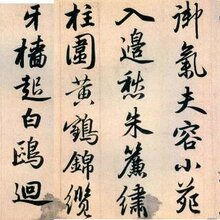 御氣夫容小苑
入邊愁朱簾繡
柱圍黃鶴錦纜
牙檣起白鷗迴